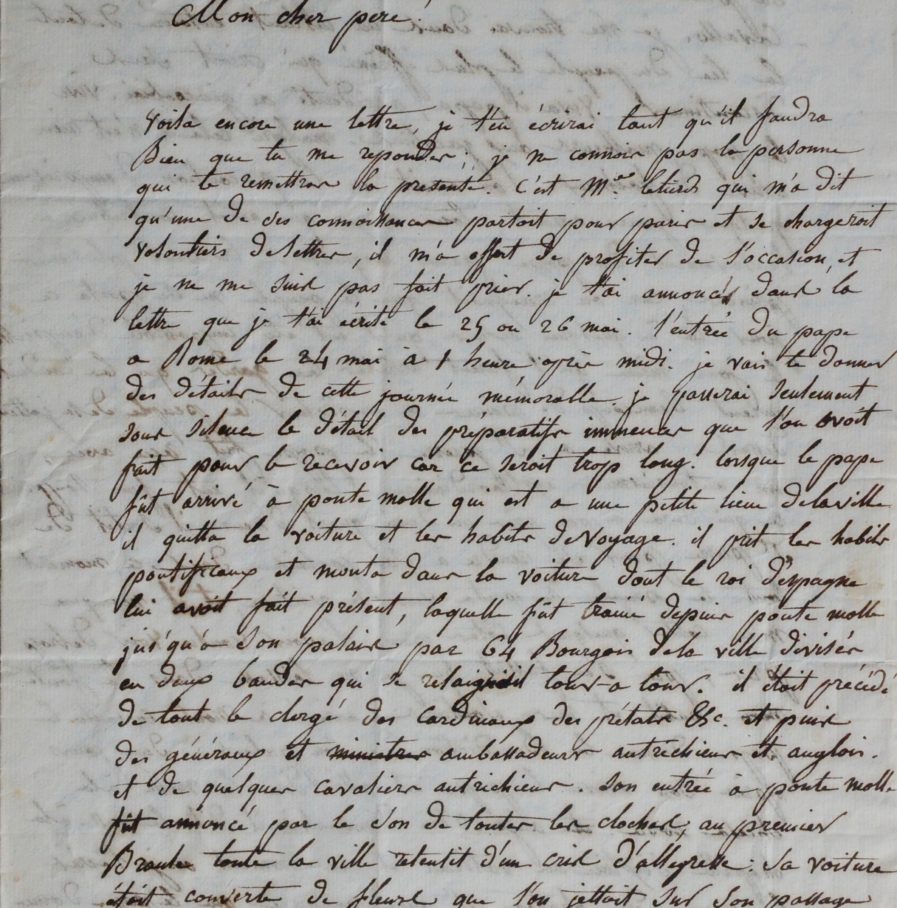 Mon cher pere!
Voila encore une lettre, je t'en écrirai tant qu'il faudra
Bien que tu me repondes; je ne connois pas la personne
qui te remettras la presente. C'est Mr. qui m'a dit
qu'une de ses connoissances partoit pour paris et se chargeroit
volontiers de lettres, il m'a offert de profiter de l'occasion, et
je ne me suis pas fait prier. je t'ai annoncés dans la
lettre que je t'ai écrite le 25 ou 26 mai. l'entrée du pape
a Rome le 24 mai à 1 heure après midi. je vais te donner
des détails de cette journée mémorable. je passerai seulement
sous silence le détail des préparatifs immenses que l'on avoit
fait pour le recevoir car ce seroit trop long. lorsque le pape
fût arrivé à ponte molle qui est a une petite lieue de la ville
il quitta la voiture et les habits de voyage. il prit les habits
pontificaux et monta dans la voiture dont le roi d'espagne
lui avoit fait présent, laquelle fût trainé depuis ponte molle
jusqu'a son palais par 64 Bourgois de la ville divisés
en deux bandes qui se tour a tour. il étoit précédé
de tout le clergé des cardinaux des prélats &c. et puis
des généraux et ministres ambassadeurs autrichiens et anglois.
et de quelques cavaliers autrichiens. son entrée a ponte molle
fût annoncé par le son de toutes les cloches, au premier
Branle toute la ville retentit d'un cris d'allegresse. Sa voiture
étoit couverte de fleurs que l'on jettoit sur son passage